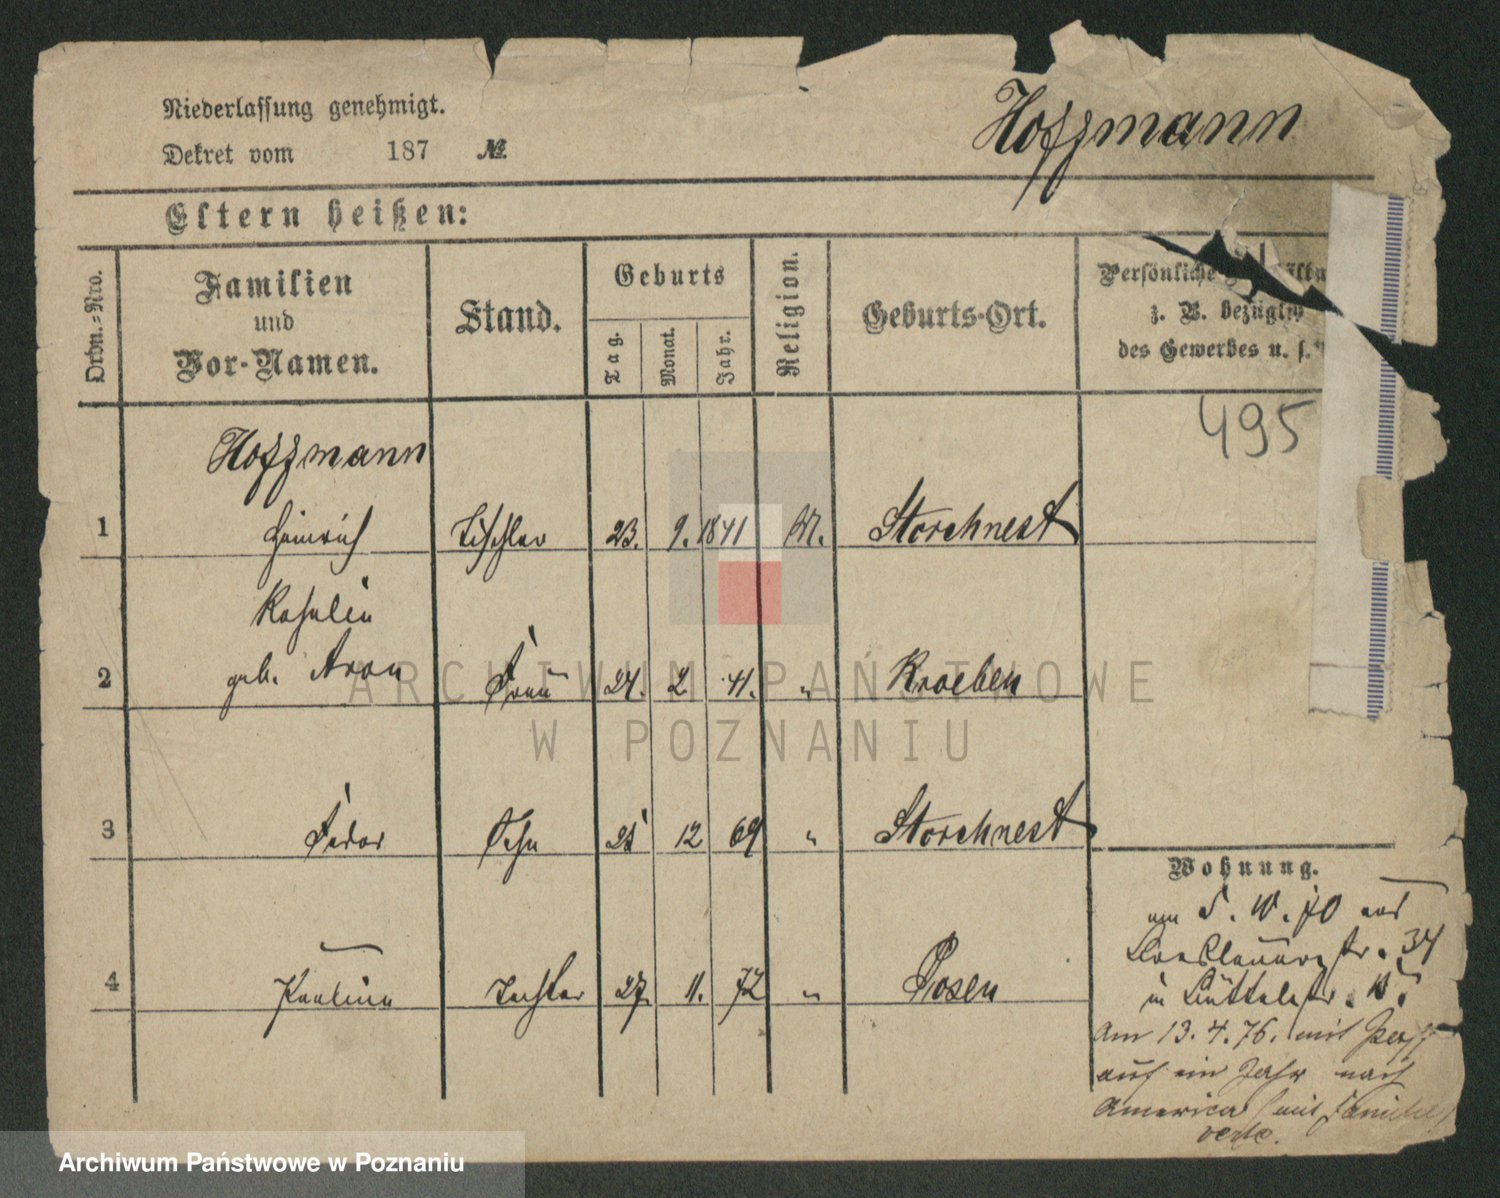 Niederlassung genehmigt.
Dekret vom 187 №
Hoffmann
Eltern heißen:
Ordn.-Nro.
Familien
und
Vor-Namen.
Stand.
Geburts
Tag.
Monat.
Jahr.
Religion.
Geburts-Ort.
Persönliche
z. B. bezüglich
des Gewerbes u. s.
495
Hoffmann
1 Heinrich Tischler 23. 9. 1841 M. Storchnest
Rosalie
2 geb. Aron Frau 24. 2. 41. " Kroeben
3 Fedor Sohn 25 12 69 " Storchnest
4 Pauline Tochter 27. 11. 72 " Posen
Wohnung.
am 5. 10. 70 aus
Breslauerstr. 34
in Büttelstr.
Am 13. 4. 76. mit
auf ein Jahr nach
America (mit Familie)
ARCHIWUM PAŃSTWOWE
W POZNANIU
Archiwum Państwowe w Poznaniu